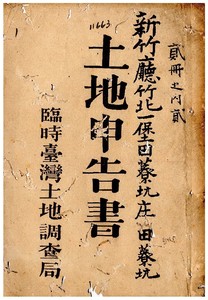 11663
貳冊之內貳
新竹廳竹北一堡
蔴坑庄
田蔴坑
土地申告書
臨時臺灣土地調查局